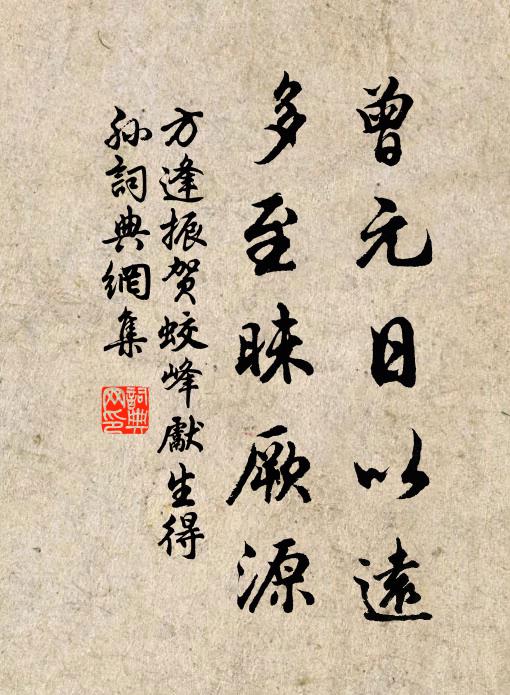 曾元日以遠
多至昧厥源
方逢振賀蛟峰獻生得
孫詞典網集
詞典
网印